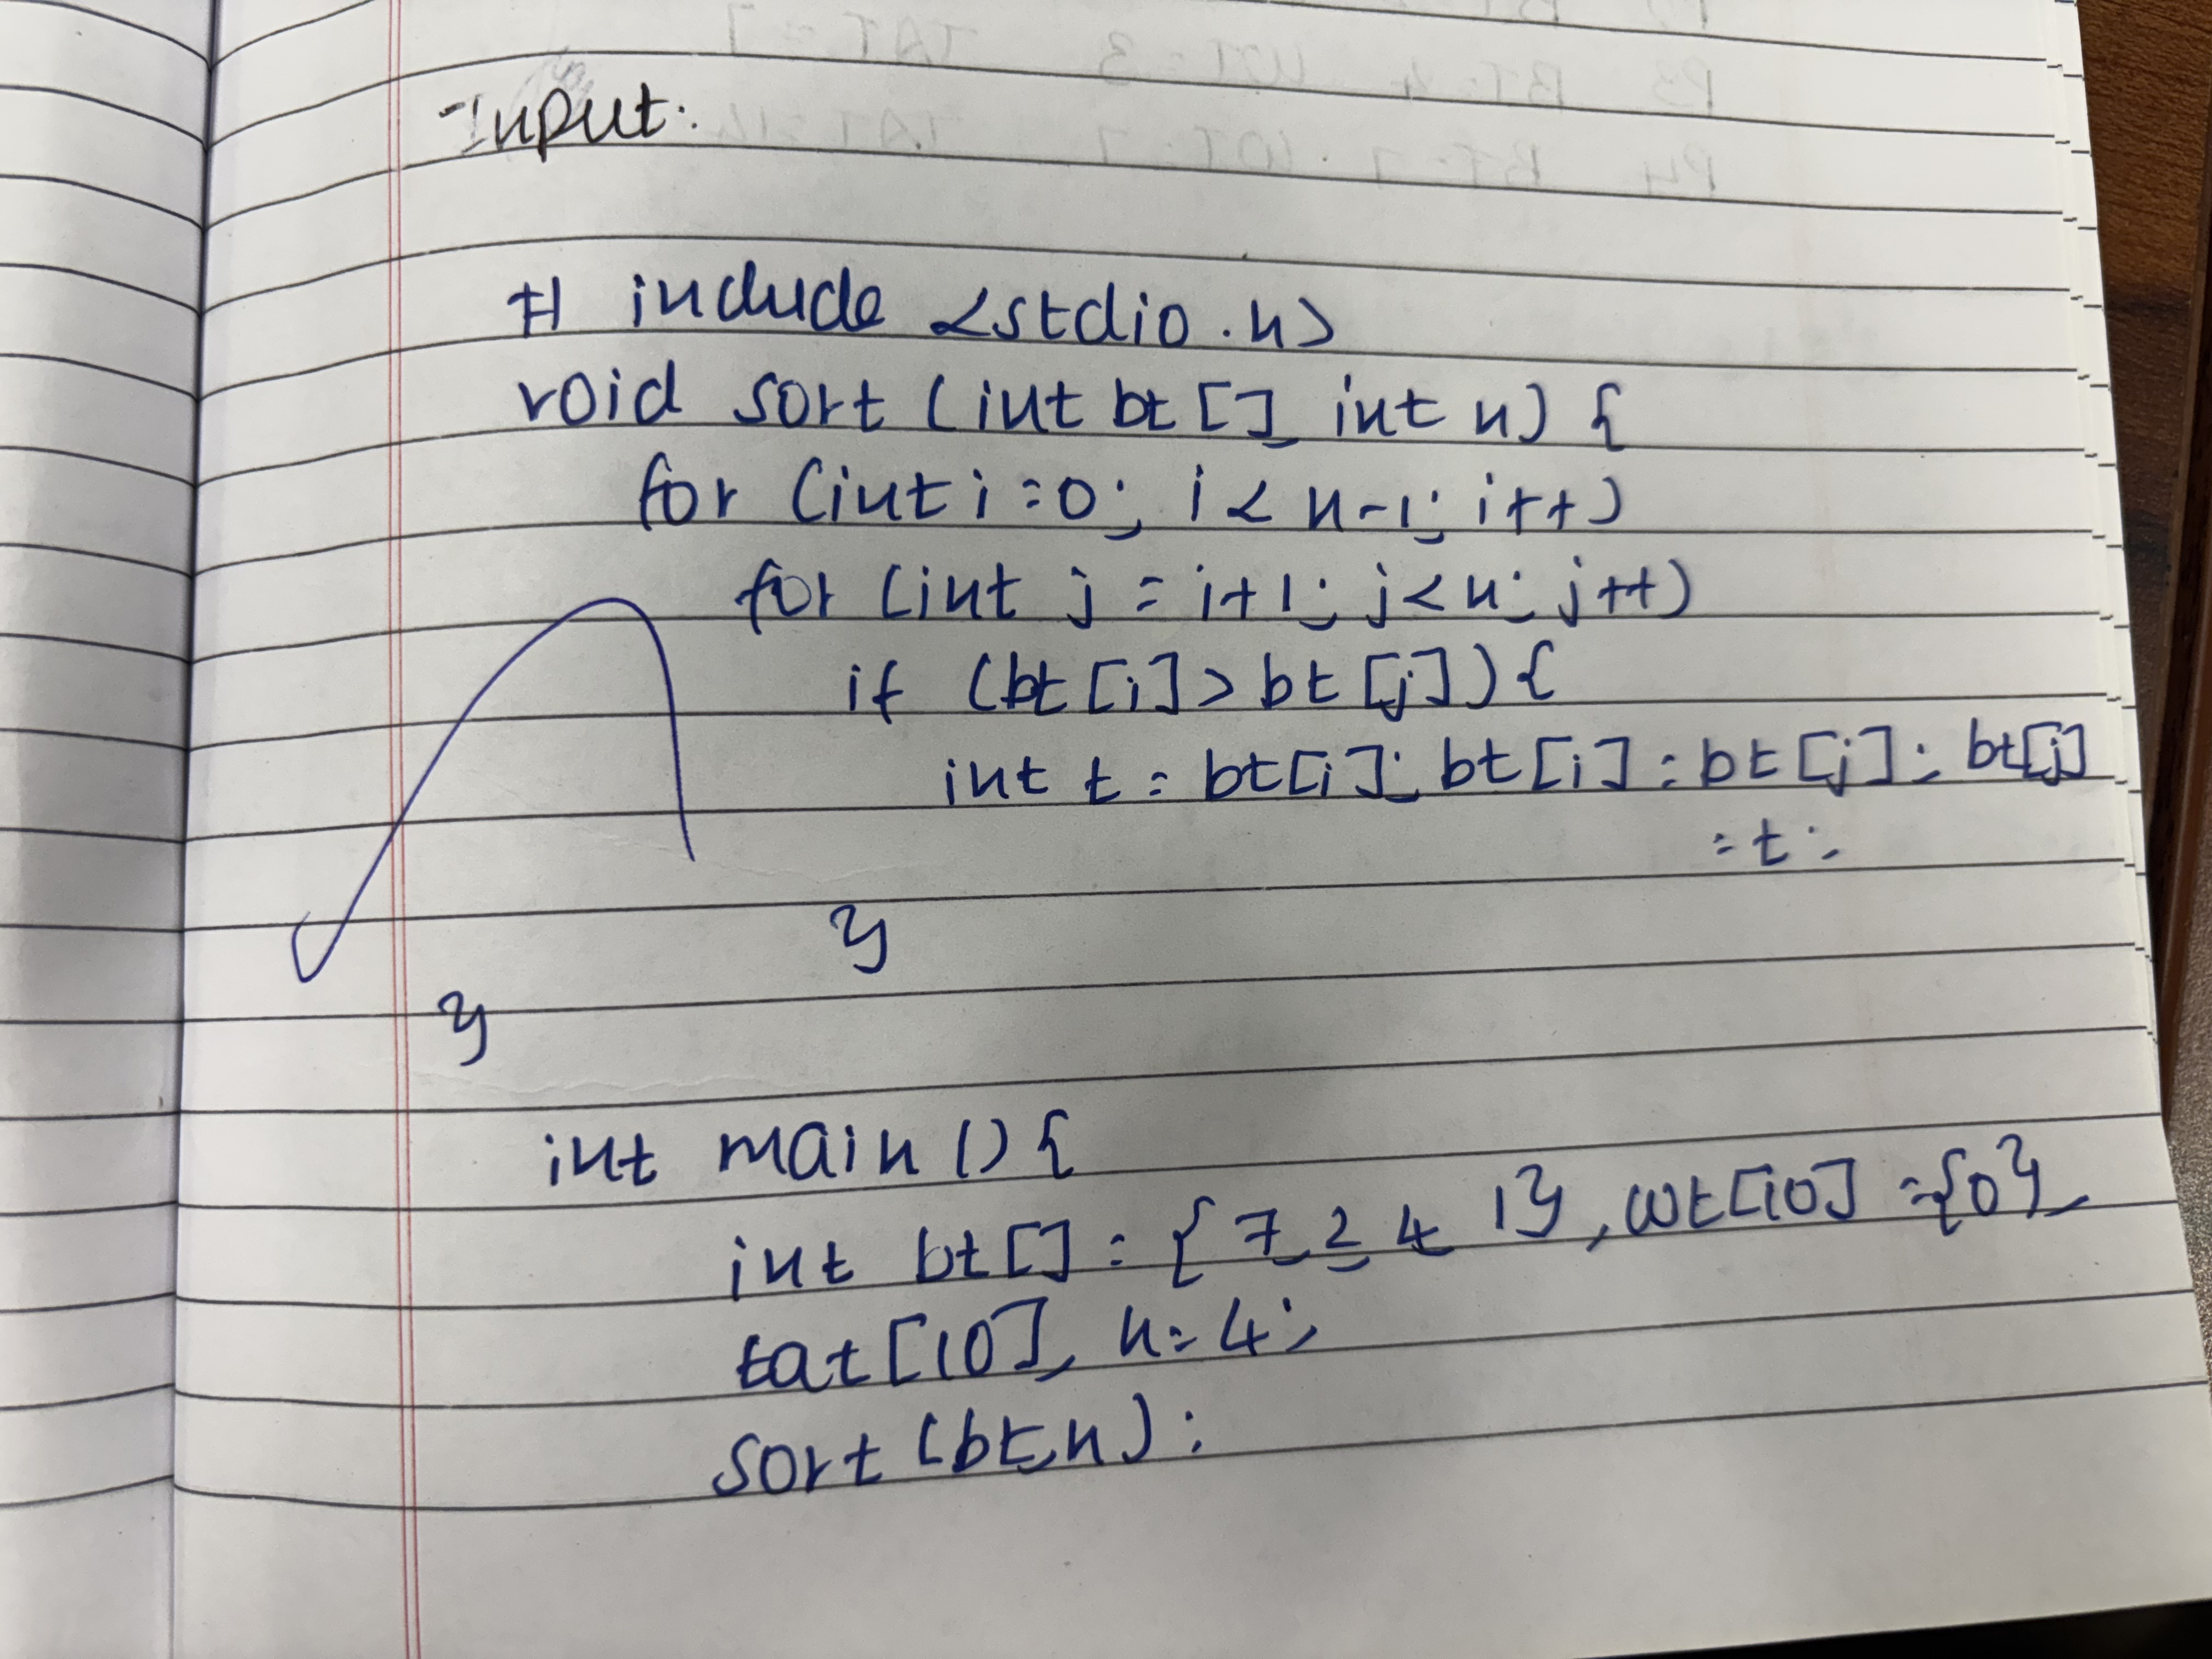 Input:
# include <stdio.h>
void sort (int bt[], int n) {
for (int i=0; i<n-1; i++)
for (int j=i+1; j<n; j++)
if (bt[i]>bt[j]) {
int t = bt[i]; bt[i] = bt[j]; bt[j]
=t;
}
}
int main () {
int bt[] = {7, 2, 4, 1}, wt[10] = {0},
tat[10], n=4;
sort (bt,n);